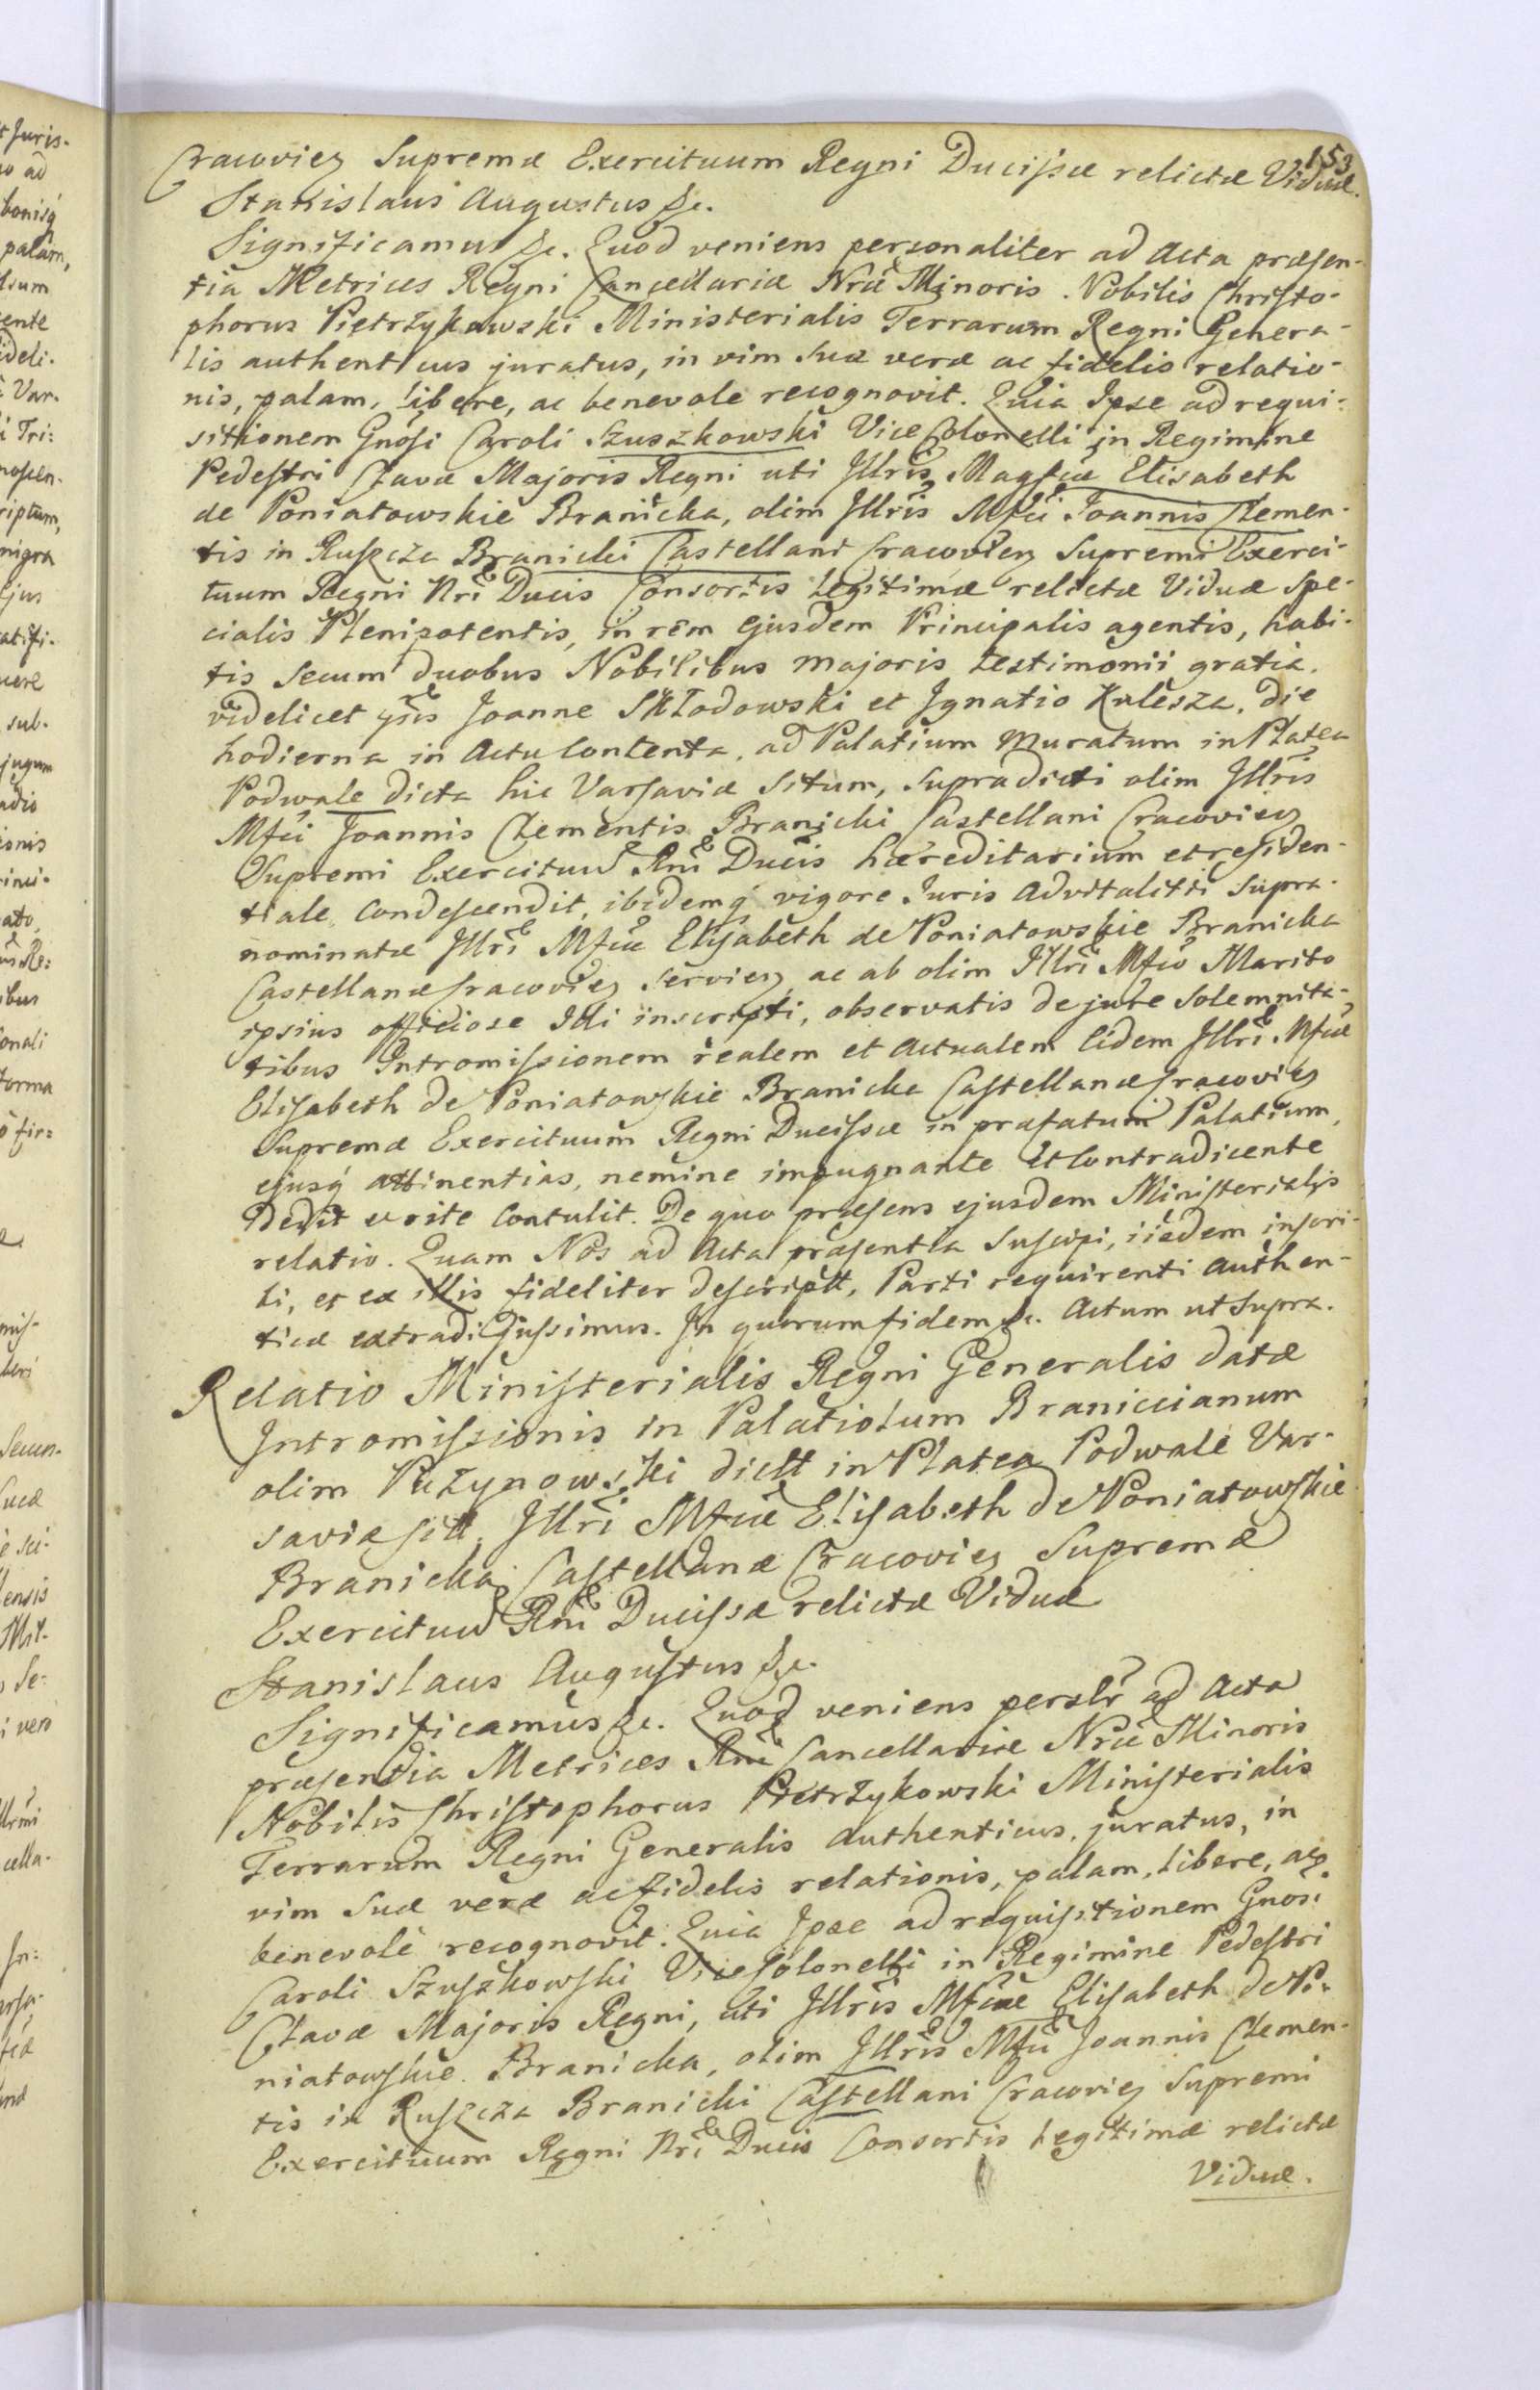 153
Cracovien Supremæ Exercituum Regni Ducissæ relictæ Viduæ.
Stanislaus Augustus &c.
Significamus &c. Quod veniens personaliter ad Acta præsen-
tia Metrices Regni Cancellariæ Nræ Minoris. Nobilis Christo-
phorus Pietrzykowski Ministerialis Terrarum Regni Genera-
lis authenticus juratus, in vim suæ veræ ac fidelis relatio-
nis, palam, libere, ac benevole recognovit. Quia Ipse ad requi-
sitionem Gnosi Caroli Szuszkowski Vice Colonelli in Regimine
Pedestri Clavæ Majoris Regni uti Illris Magfcæ Elisabeth
de Poniatowskie Branicka, olim Illris Mfci Joannis Clemen-
tis in Ruszcza Branicki Castellani Cracovien Supremi Exerci-
tuum Regni Nri Ducis Consortis legitimæ relictæ Viduæ Spe-
cialis Plenipotentis, in rem ejusdem Principalis agentis, habi-
tis secum duobus Nobilibus majoris testimonii gratia.
videlicet gsis Joanne Skłodowski et Ignatio Kulesza, die
hodierna in Actu Contenta, ad Palatium muratum in Platea
Podwale dicta hic Varsaviæ Situm, supradicti olim Illris
Mfci Joannis Clementis Branicki Castellani Cracovien
Supremi Exercituu Rni Ducis hæreditarium et residen-
tiale Condescendit, ibidemq vigore Juris Advitalitii supra-
nominatæ Illri Mfcæ Elisabeth de Poniatowskie Branicka
Castellanæ Cracovien servien, ac ab olim Illri Mfco Marito
ipsius officiose Illi inscripti, observatis de jure solemnita-
tibus Intromissionem realem et actualem Eidem Illri Mfcæ
Elisabeth de Poniatowskie Branicka Castellanæ Cracovien
Supremæ Exercituum Regni Ducissæ in præfatum Palatium,
ejusq attinentias, nemine impugnante et Contradicente
Dedit ac rite Contulit. De quo præsens ejusdem Ministerialis
relatio. Quam Nos ad Acta præsentia suscipi, iisdem inscri-
bi, et ex illis fideliter descriptt, Parti requirenti authen-
tice extradi Jussimus. In quorum fidem &c. Actum ut supra.
Relatio Ministerialis Regni Generalis datæ
Intromissionis in Palatiolum Braniccianum
olim Puzynowski dictt in Platea Podwale Var-
saviæ sitt, Illri Mfcæ Elisabeth de Poniatowskie
Branicka Castellanæ Cracovien Supremæ
Exercituu Rni Ducissæ relictæ Viduæ
Stanislaus Augustus &c.
Significamus &c. Quod veniens perslr ad Acta
præsentia Metrices Rni Cancellariæ Nræ Minoris
Nobilis Christophorus Pietrzykowski Ministerialis
Terrarum Regni Generalis authenticus, juratus, in
vim suæ veræ ac fidelis relationis, palam, libere, acq
benevole recognovit. Quia Ipse ad requisitionem Gnosi
Caroli Szuszkowski Vice Colonelli in Regimine Pedestri
Clavæ Majoris Regni, uti Illris Mfcæ Elisabeth de Po-
niatowskie Branicka, olim Illris Mfci Joannis Clemen-
tis in Ruszcza Branicki Castellani Cracovien Supremi
Exercituum Regni Nri Ducis Consortis legitimæ relictæ
Viduæ.